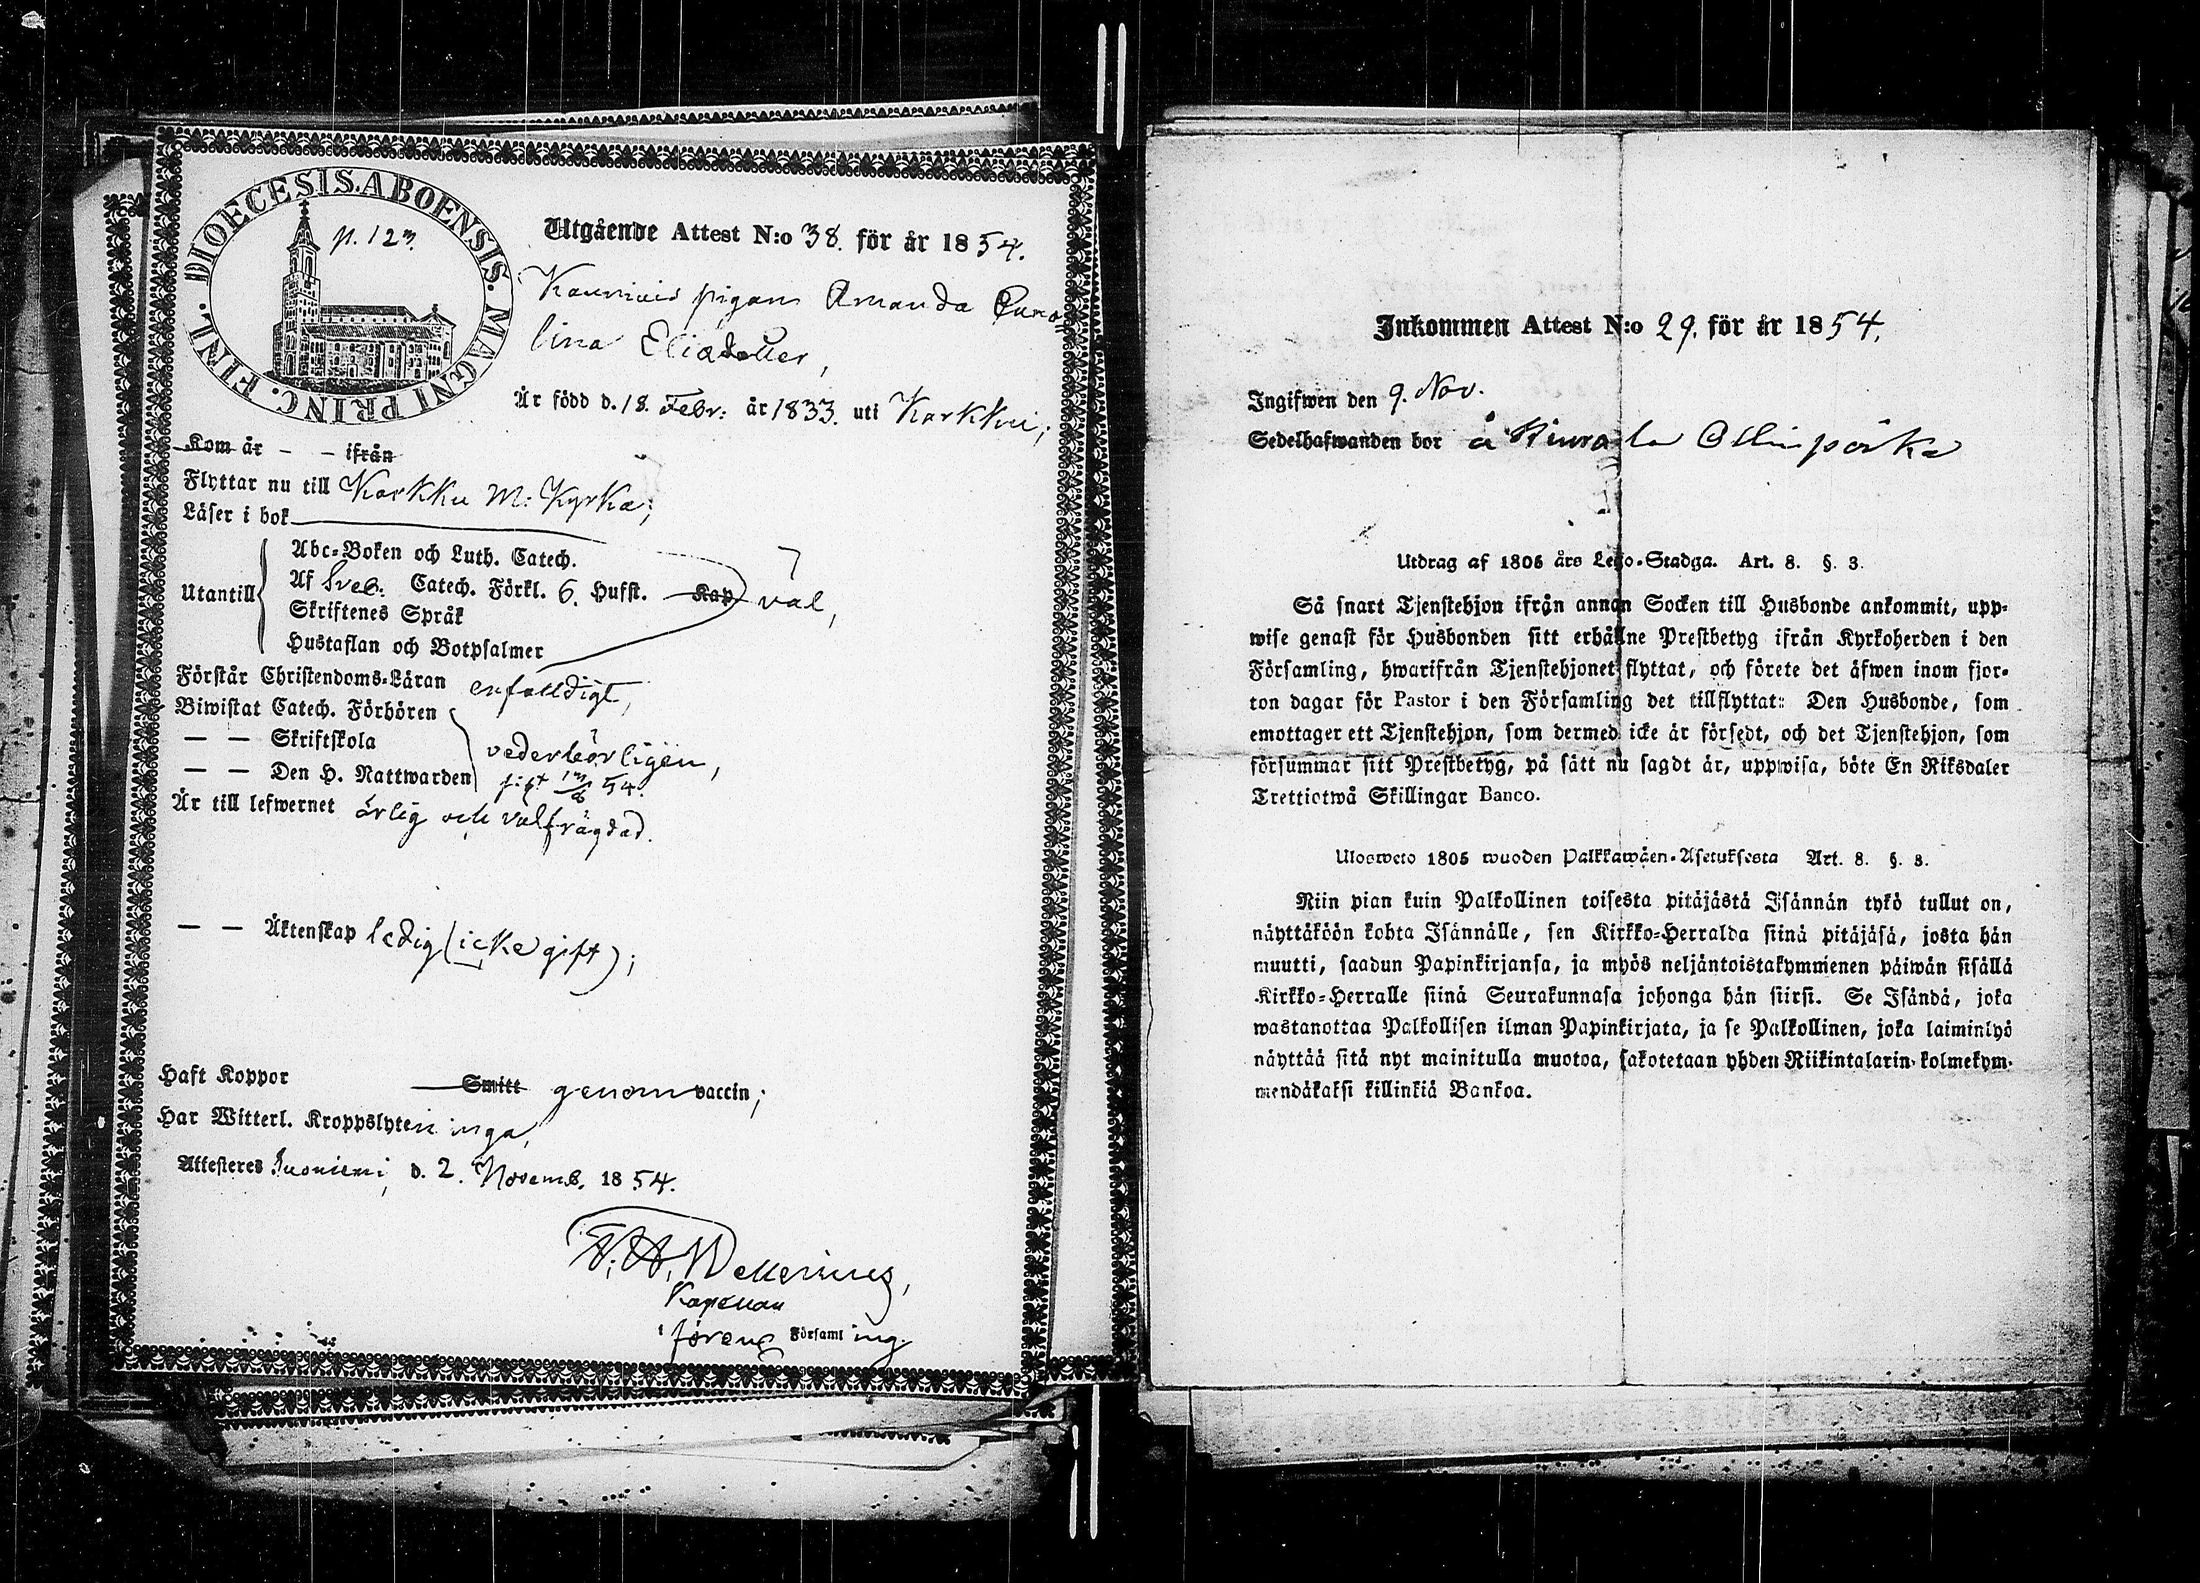 DIOECESIS. ABOENSIS. MAGNI PRINC. FINL.
p. 123.
Utgående Attest N:o 38. för år 1854.
pigan Amanda Caro=
lina Eliædotter,
Är född d. 18. Febr: år 1833. uti Karkku;
Kom år - - ifrån
Flyttar nu till Karkku M: Kyrka;
Läser i bok
Abc-Boken och Luth. Catech.
Utantill Af Sveb: Catech. Förkl. 6. Hufst. Kap väl,
Skriftenes Språk
Hustaflan och Botpsalmer
Förstår Christendoms-Läran enfalldigt,
Biwistat Catech. Förhören
— — Skriftskola vederbörligen,
— — Den H. Nattwarden 54.
Är till lefwernet ärlig och välfrägdad.
— — Äktenskap ledig (icke gift);
Haft Koppor Smitt genom vaccin;
Har Witterl. Kroppslyten inga,
Attesteres Suoniemi, d. 2. Novemb. 1854.
Kapellan
i förens Församling.
Inkommen Attest N:o 29. för år 1854.
Ingifwen den 9. Nov.
Sedelhafwanden bor å
Utdrag af 1805 års Lego-Stadga. Art. 8. §. 3.
Så snart Tjenstehjon ifrån annan Socken till Husbonde ankommit, upp-
wise genast för Husbonden sitt erhållne Prestbetyg ifrån Kyrkoherden i den
Församling, hwarifrån Tjenstehjonet flyttat, och förete det äfwen inom fjor-
ton dagar för Pastor i den Församling det tillflyttat: Den Husbonde, som
emottager ett Tjenstehjon, som dermed icke är försedt, och det Tjenstehjon, som
försummar sitt Prestbetyg, på sätt nu sagdt är, uppwisa, böte En Riksdaler
Trettiotwå Skillingar Banco.
Ulosweto 1805 wuoden Palkkawäen-Asetuksesta Art. 8. §. 3.
Niin pian kuin Palkollinen toisesta pitäjästä Isännän tykö tullut on,
näyttäköön kohta Isännälle, sen Kirkko-Herralda siinä pitäjäsä, josta hän
muutti, saadun Papinkirjansa, ja myös neljäntoistakymmenen päiwän sisällä
Kirkko-Herralle siinä Seurakunnasa johonga hän siirsi. Se Isändä, joka
wastanottaa Palkollisen ilman Papinkirjata, ja se Palkollinen, joka laiminlyö
näyttää sitä nyt mainitulla muotoa, sakotetaan yhden Riikintalarin kolmekym-
mendäkaksi killinkiä Bankoa.